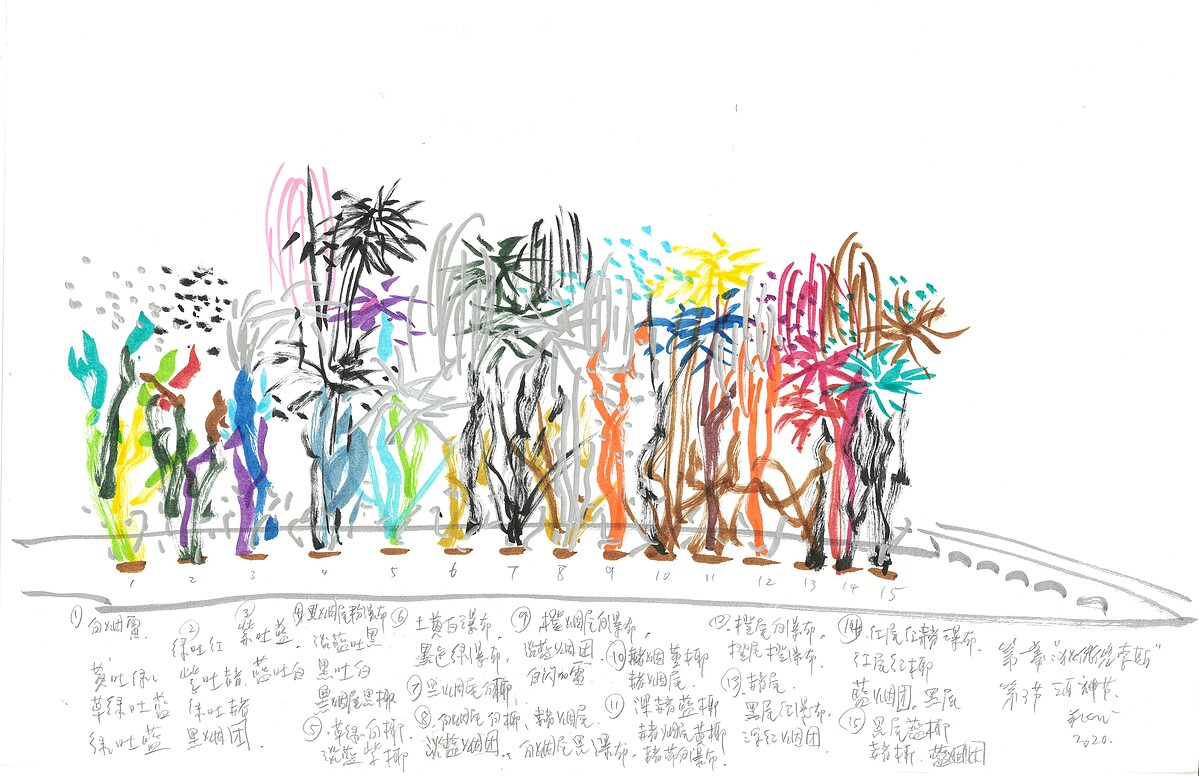 1 2 3 4 5 6 7 8 9 10 11 12 13 14 15
① 白烟雷
黄吐绿
草绿吐蓝
绿吐蓝
②
绿吐红
紫吐赭
绿吐赭
黑烟团
③
紫吐蓝
蓝吐白
④ 黑烟尾粉瀑布
浴蓝吐黑
黑吐白
黑烟尾黑椰
⑤ 草绿白椰
淡蓝紫椰
⑥ 土黄白瀑布
墨色绿瀑布
⑦ 黑烟尾白椰
⑧ 白烟尾白椰
淡蓝烟团
赭烟尾
白烟尾黑瀑布
⑨ 橙烟尾白瀑布
淡蓝烟团
白闪加雷
⑩ 赭烟黄椰
赭烟尾
⑪ 深赭蓝椰
赭烟尾黄椰
赭黄白瀑布
⑫ 橙尾白瀑布
橙尾橙瀑布
⑬ 赭尾
黑尾红瀑布
深红烟团
⑭ 红尾红赭瀑布
红尾红椰
蓝烟团 黑尾
⑮ 黑尾蓝椰
赭椰 蓝烟团
第一幕 "狄俄尼索斯"
第3节 酒神节
2020.